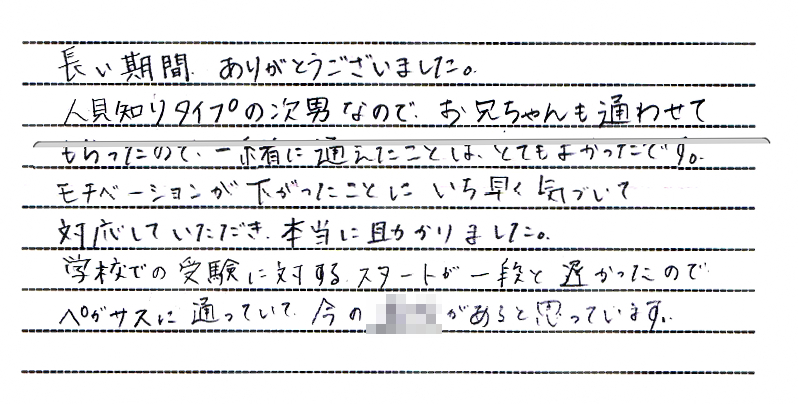 長い期間、ありがとうございました。
人見知りタイプの次男なので、お兄ちゃんも通わせて
もらったので、一緒に通えたことは、とてもよかったです。
モチベーションが下がったことにいち早く気づいて
対応していただき、本当に助かりました。
学校での受験に対するスタートが一段と遅かったので
ペガサスに通っていて、今の があると思っています。